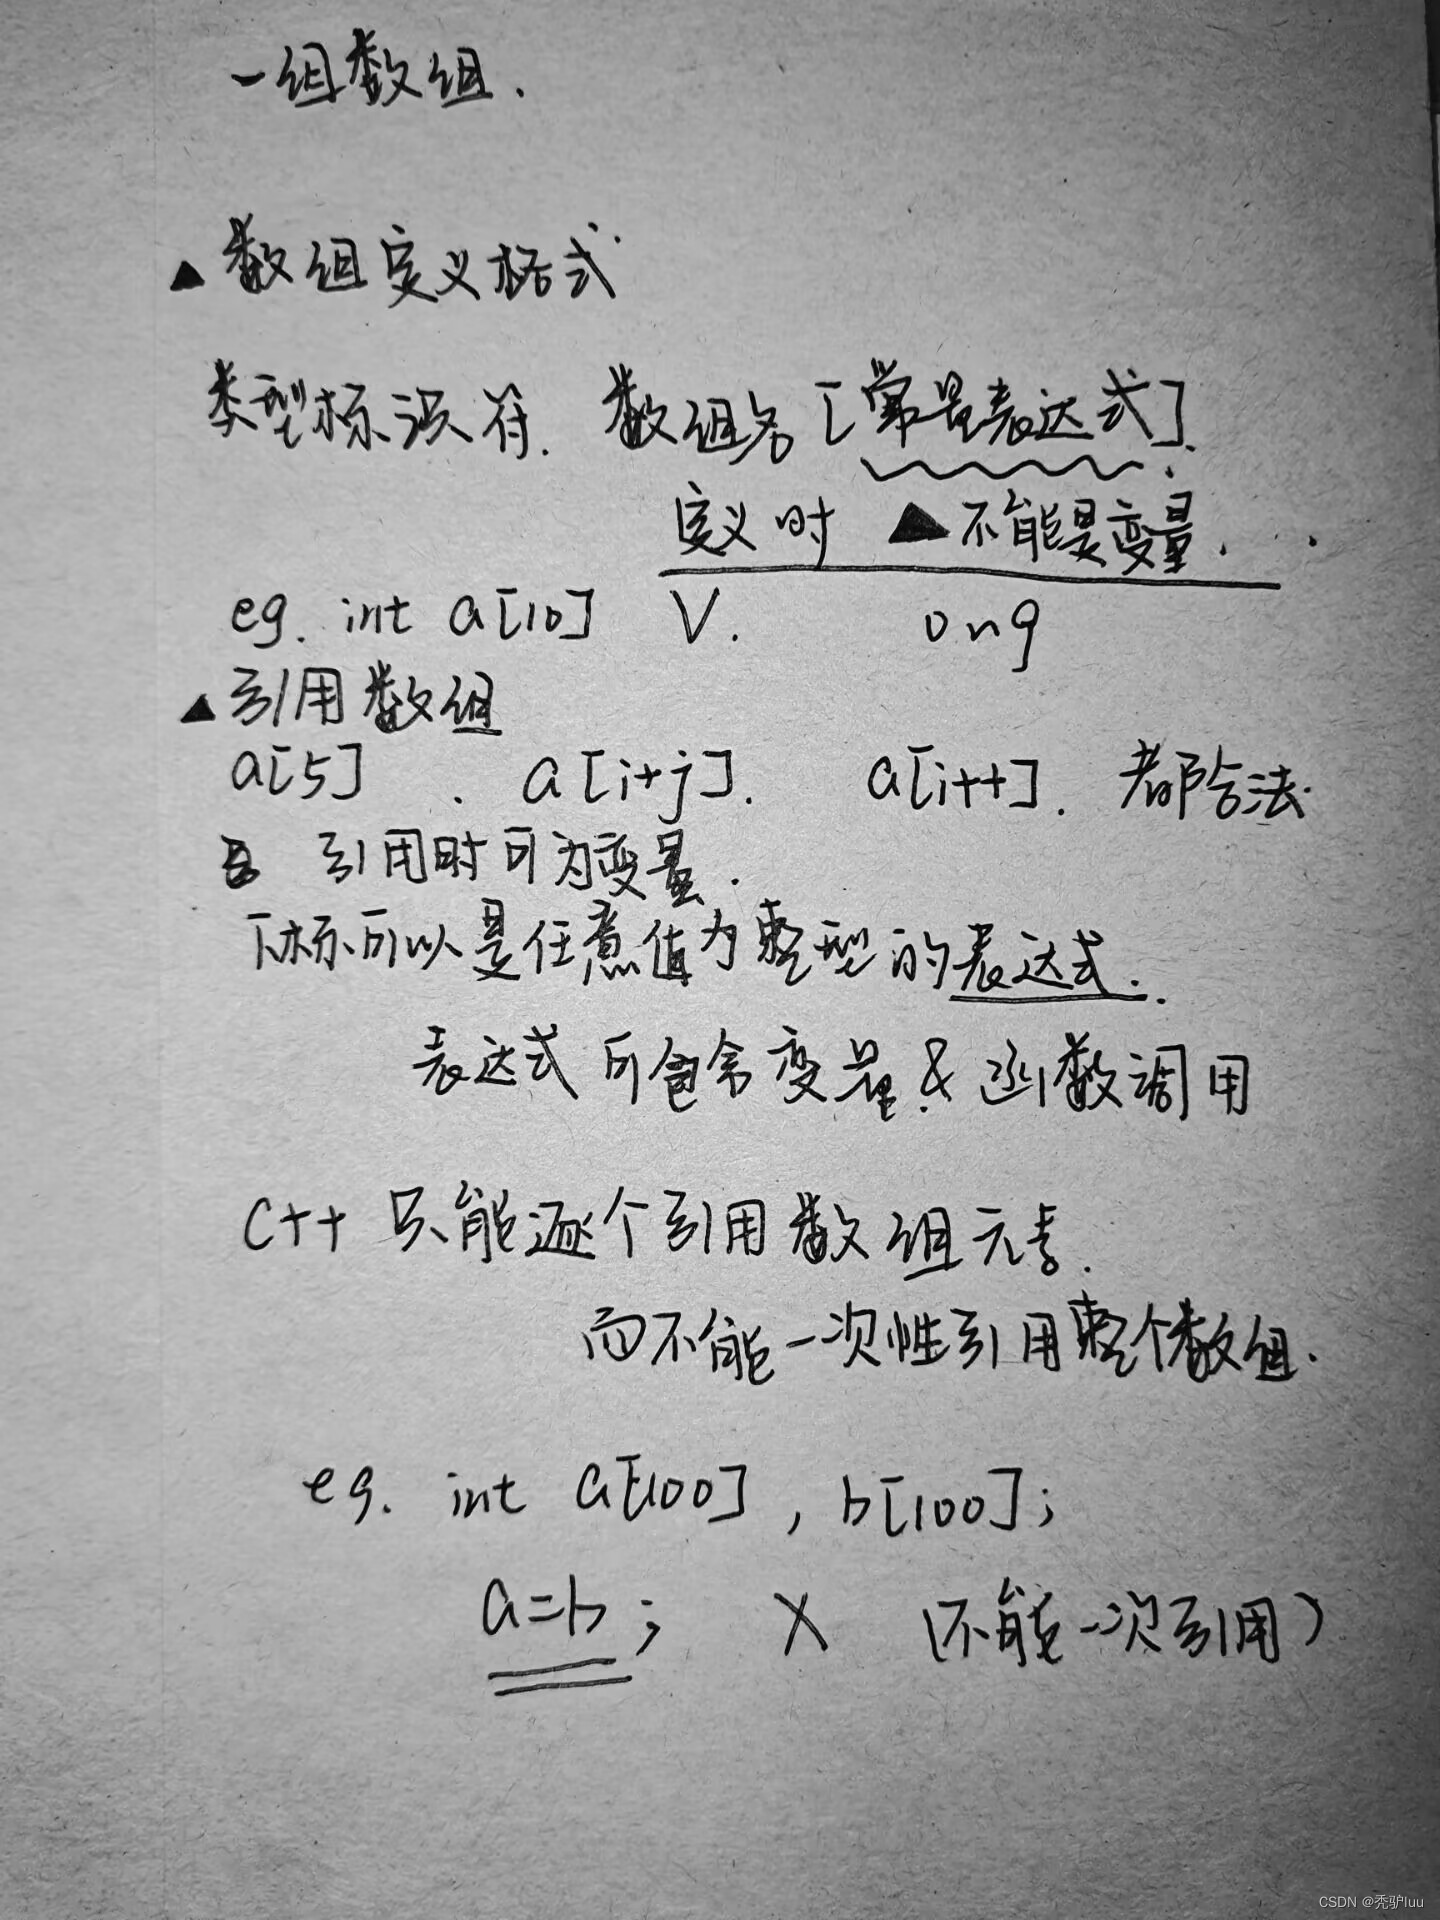 一组数组.
▲数组定义格式
类型标识符. 数组名[常量表达式].
定义时 ▲不能是变量.
eg. int a[10] V. 0 n 9
▲引用数组
a[5] . a[i+j]. a[i++]. 都合法.
引用时可为变量.
下标可以是任意值为整型的表达式.
表达式可包含变量&函数调用
C++ 只能逐个引用数组元素.
而不能一次性引用整个数组.
eg. int a[100], b[100];
a=b; X (不能一次引用)
CSDN @秃驴luu